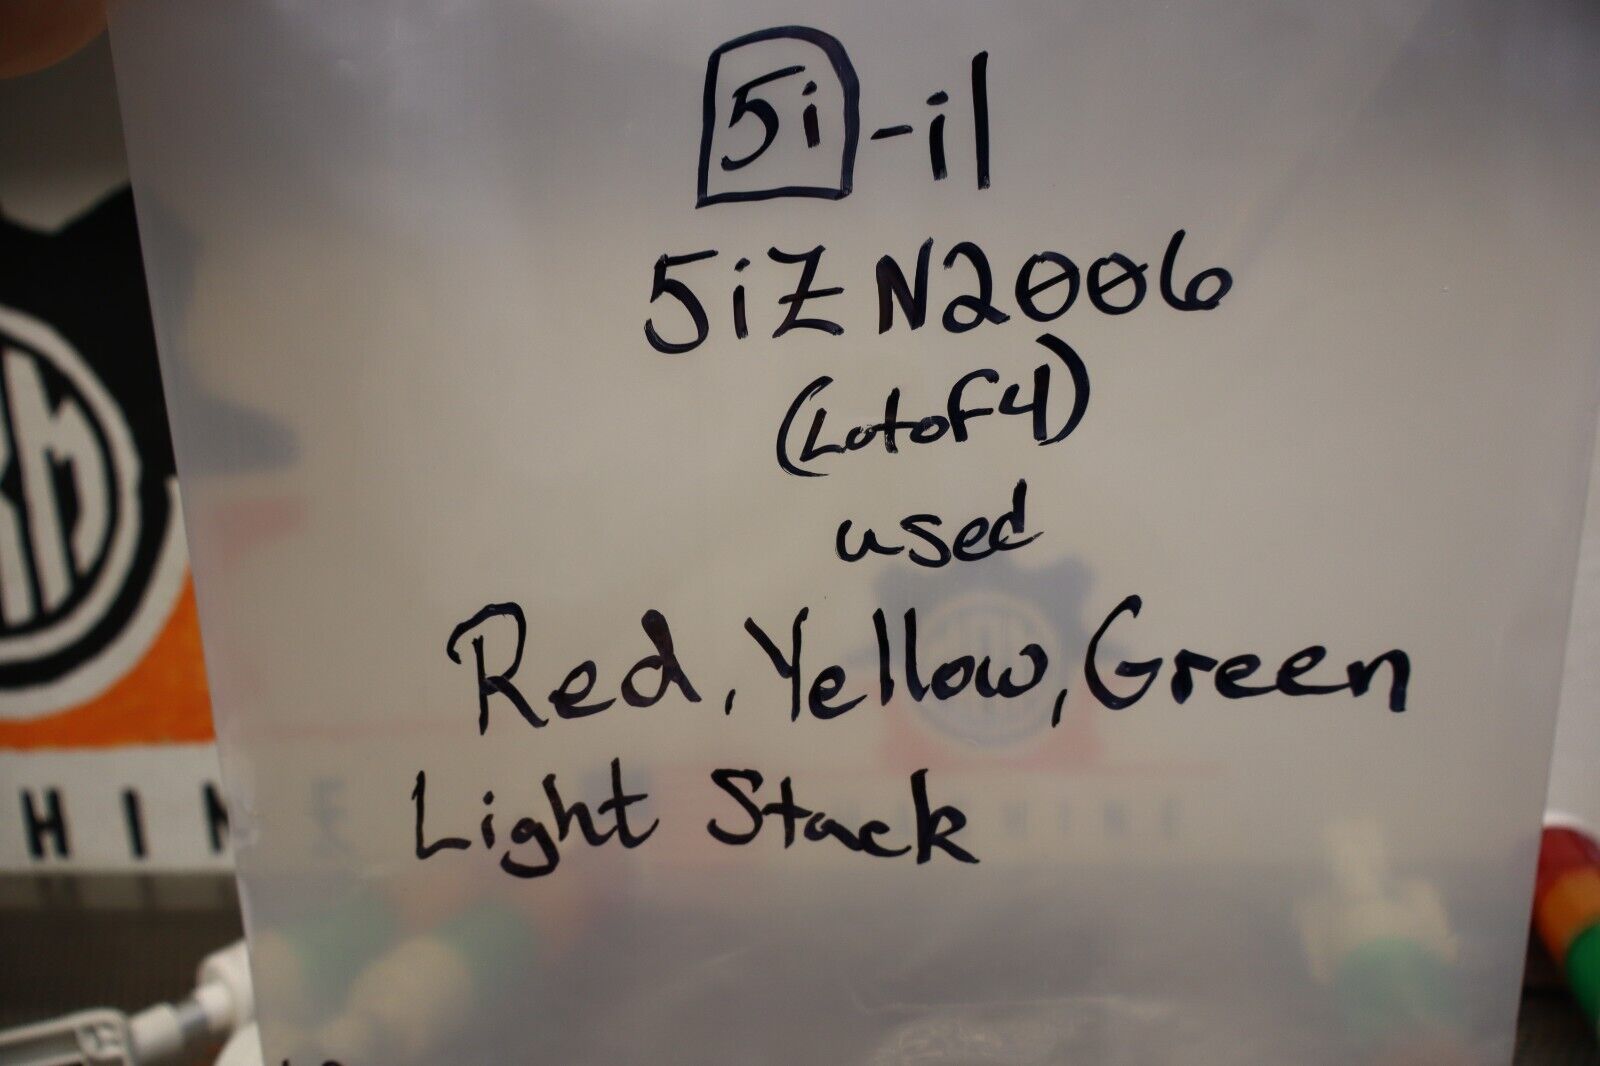 5i-i1
5iZN2006
(Lot of 4)
used
Red, Yellow, Green
Light Stack
RM
HIN